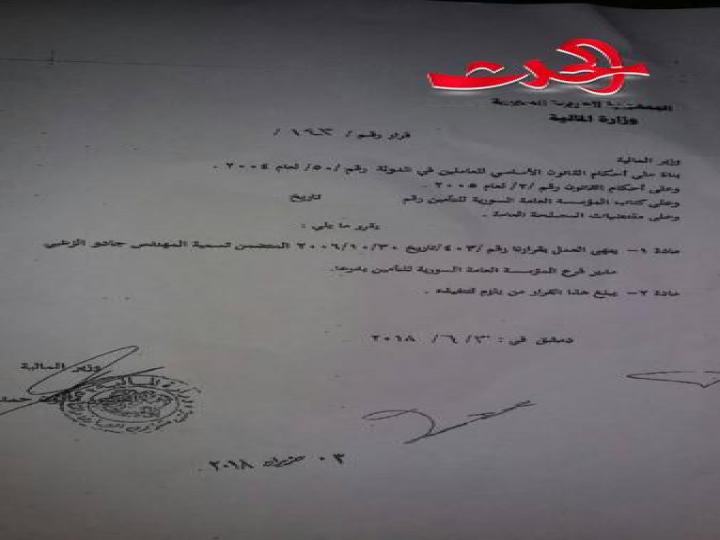 الجمهورية العربية السورية
وزارة المالية
قرار رقم / ١٩٣ /
وزير المالية
بناء على أحكام القانون الأساسي للعاملين في الدولة رقم /٥٠/ لعام ٢٠٠٤ .
وعلى أحكام القانون رقم /٢/ لعام ٢٠٠٥ .
وعلى كتاب المؤسسة العامة السورية للتأمين رقم تاريخ
وعلى مقتضيات المصلحة العامة .
يقرر ما يلي :
مادة ١- ينهى العمل بقرارنا رقم /٤٠٣/تاريخ ٢٠٠٦/١٠/٣٠ المتضمن تسمية المهندس الزعبي
مدير فرع المؤسسة العامة السورية للتأمين بدرعا.
مادة ٢- يبلغ هذا القرار من يلزم لتنفيذه .
دمشق في : ٣ / ٦ / ٢٠١٨
وزير المالية
حمد
٠٣ حزيران ٢٠١٨